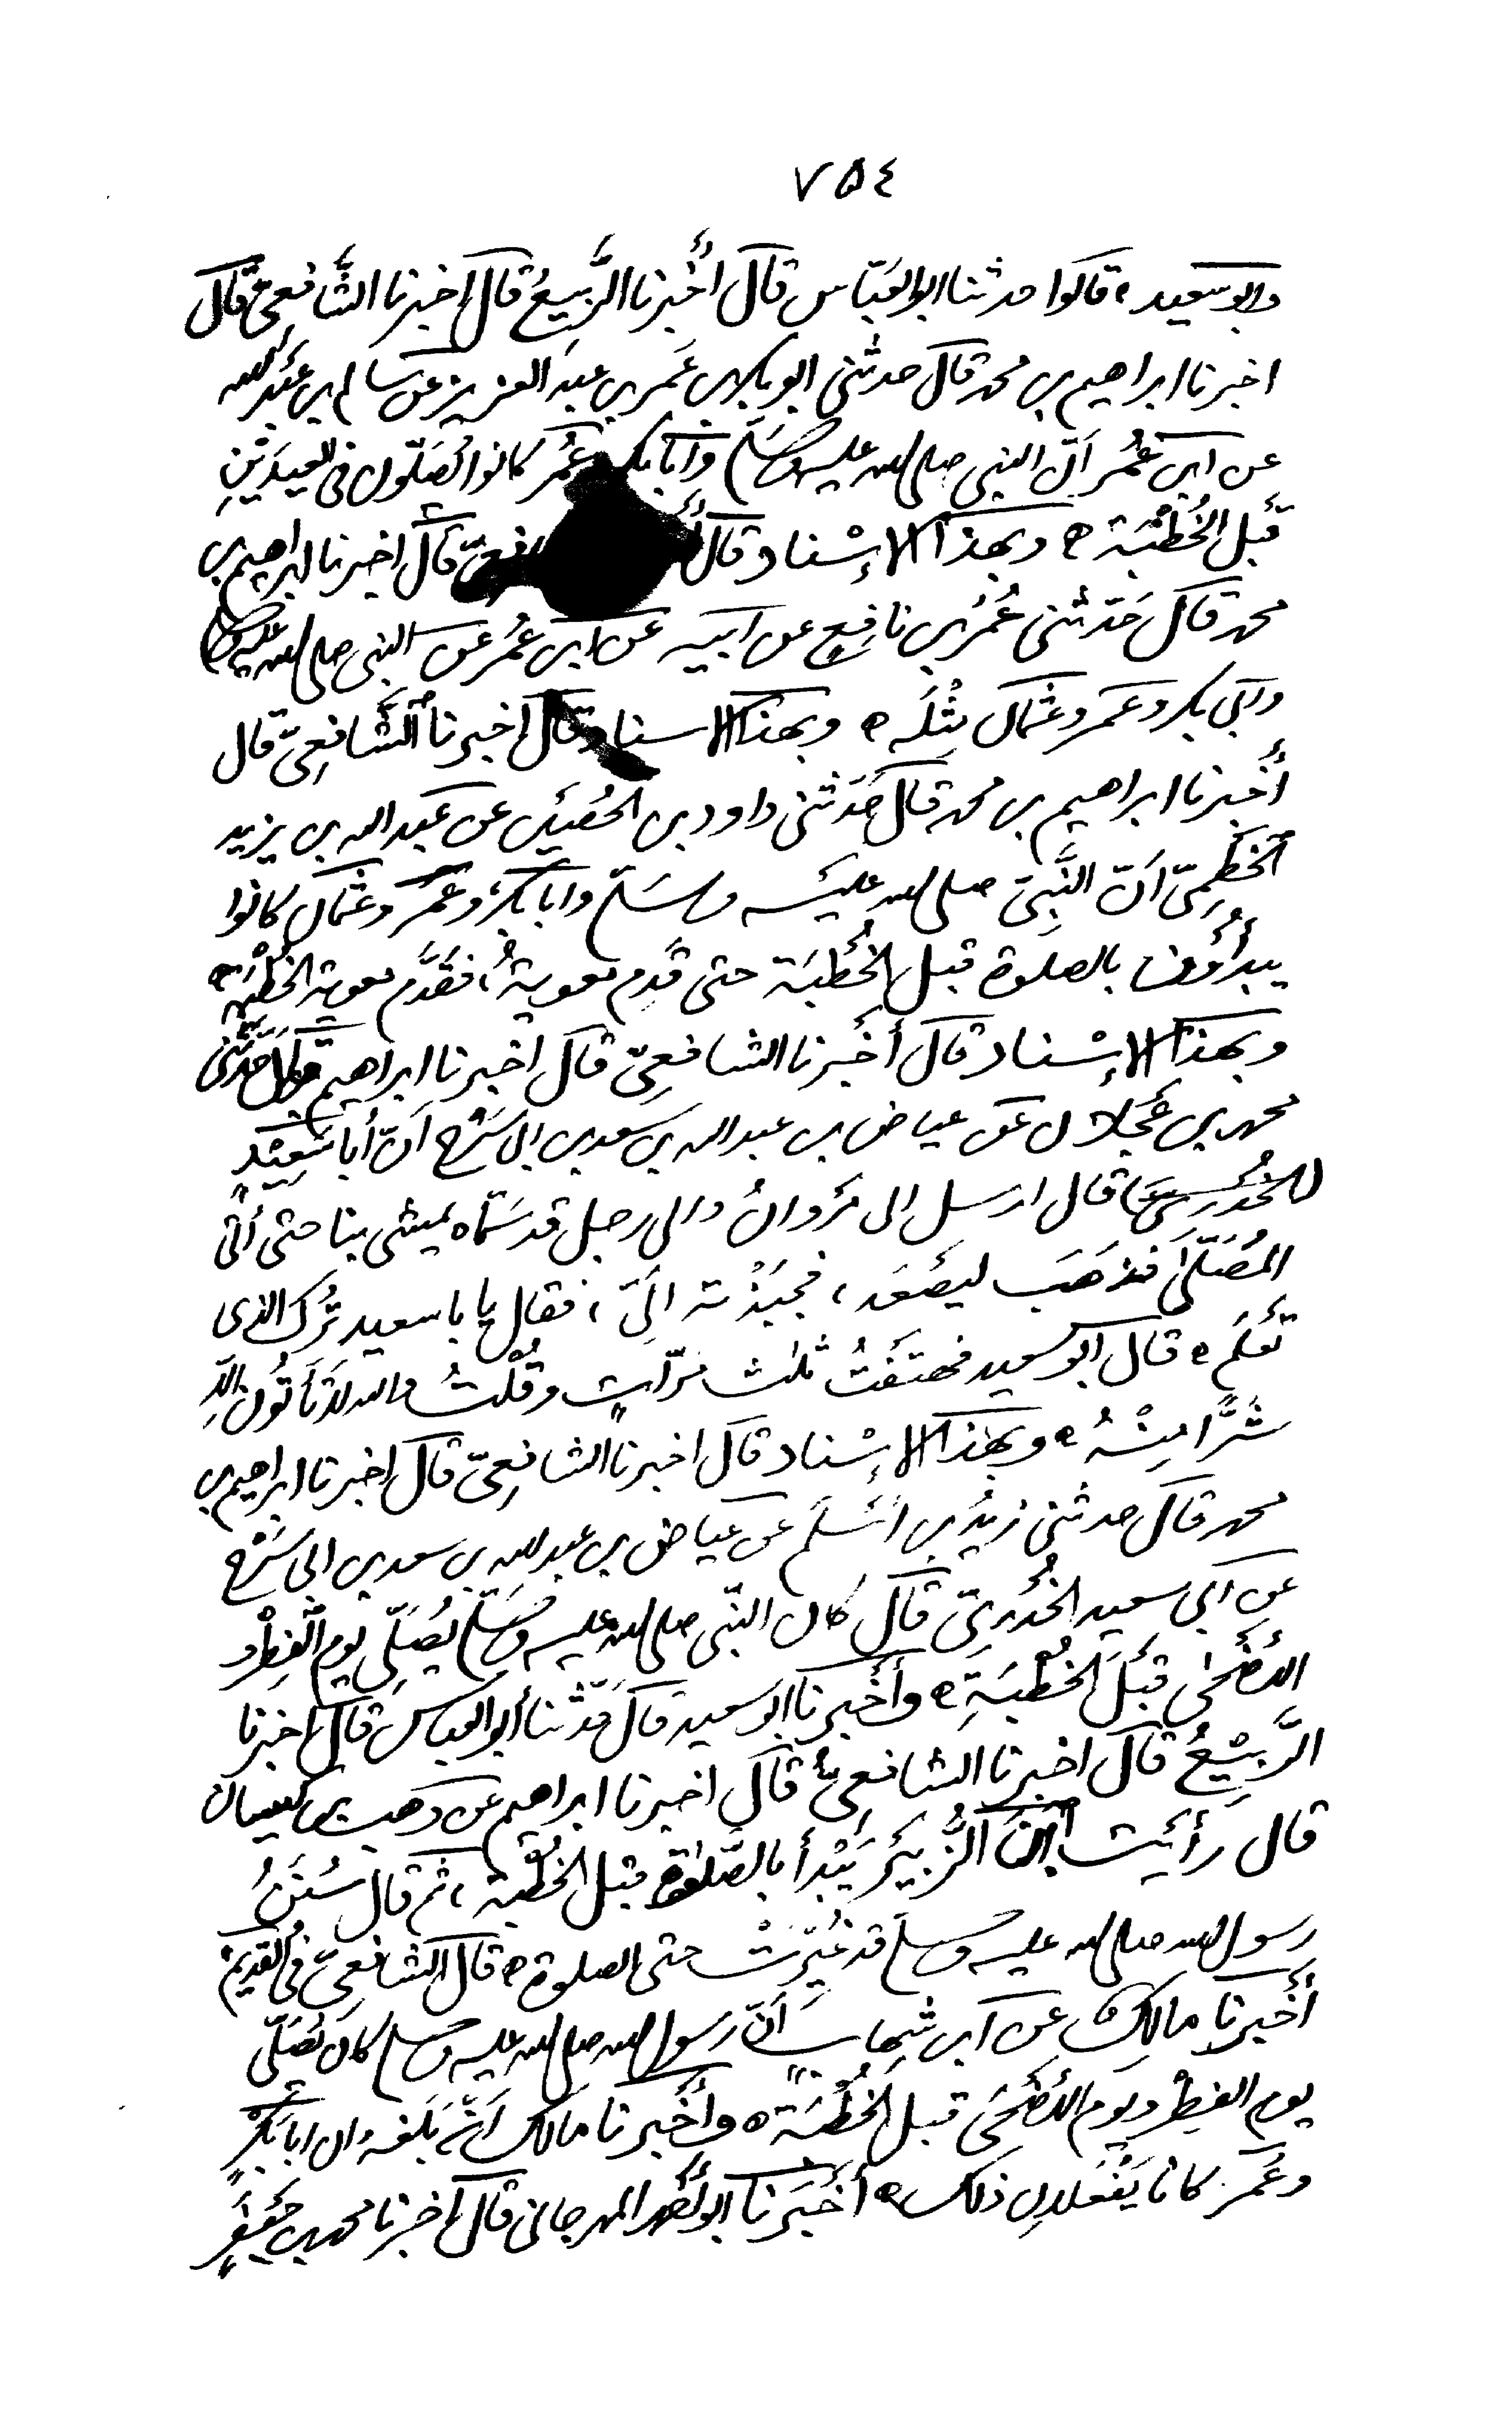 ٧٥٤
وابو سعيد ٥ قالوا حدثنا ابو العَبّاس قال أَخْبرنا الرَّبيعُ قال اخبرنا الشَّافعِيّ قال
اخبرنا ابراهيم بن محمد قال حدثنى ابو بكر بن عُمر بن عبد العزيز عن سالم بن عَبْد الله
عن ابن عُمُر انّ النبى صلى الله عليه وسَلّم وأبا بكر وعُمَر كانوا يُصَلّون فى العِيدَيْنِ
قَبْل الخُطْبَة ٥ وبهذا الإسْناد قال فعىّ قال اخبرنا ابراهيم بن
محمد قال حَدّثنى عُمَرُ بن نافِعٍ عن ابيه عن ابن عُمُر عن النبى صلى الله عليه وسلم
وابى بكر وعمر وعُثمان مِثْلَه ٥ وبهذا الاسناد وقال اخبرنا الشَّافعِىّ قال
أَخْبرنا ابراهيم بن محمد قال حَدّثنى داود بن الحُصَيْن عن عَبد الله بن يزيد
الخَطْمِىّ اَنّ النَّبِىّ صلى الله عليْه وسَلّم وابا بكر وعُمَر وعُثمان كانوا
يبدأُون بالصلوة قبل الخُطْبَة حتى قَدِم معوية، فقَدَّم معوية الخُطْبَة ٥
وبهذا الإسْناد قال أَخْبرنا الشافعِىّ قال اخْبرنا ابراهيم قال حَدّثنى
محمد بن عَجْلان عن عياض بن عبد الله بن سعد بن ابى سَرْح اَنّ أبا سَعِيْدٍ
الخُدْرِىّ قال ارسل الى مَرْوانُ والى رجل قد سَمّاه يمشى بنا حتى أتى
المُصَلّى فذهَبَ ليَصْعَد، فجبَذْته اِلَىّ، فقال يا با سعيد تُرِك الذى
تَعْلَم ٥ قال ابو سعيد فهتَفْتُ ثلث مَرّاتٍ وقُلْتُ والله لا تأتُون اِلّا
شَرًّا مِنْهُ ٥ وبهذا الإسْناد قال اخبرنا الشافعِىّ قال اخبرنا ابراهيم بن
محمد قال حدثنى زيْدُ بن أَسْلَم عن عياض بن عبد الله بن سعد بن ابى سَرْح
عن ابى سعيد الخُدْرِىّ قال كان النّبى صلى الله عليه وسَلّم يُصَلّى يوم الفِطْر و
الأضْحٰى قَبْلَ الخُطْبَةِ ٥ وأَخْبرنا ابو سعيد قال حَدّثنا أبو العباس قال اخبرنا
الرَّبِيْعُ قال اخبرنا الشافعىّ قال اخبرنا ابراهيم عن وهب بن كيسان
قال رَأَيْت ابْنَ الزُّبَيْر يَبْدأ بالصّلوة قبل الخُطْبَة، ثم قال سُنَنُ
رسول الله صلى الله عليه وسلم قد غُيّرَتْ حتى الصلوة ٥ قال الشافعىّ فى القَدِيْم
أَخْبرنا مالِك عن ابن شِهابٍ أَنّ رسول الله صلى الله عليه وسلم كان يُصَلّى
يوم الفِطْر ويوم الأضْحَى قبل الخُطْبَة ٥ وأَخْبرنا مالك انّه بَلَغه ان ابا بَكْرٍ
وعُمَر كانا يَفْعَلان ذلك ٥ أَخْبَرنا ابو المهرجانى قال اخبرنا محمد بن جَعْفَرٍ